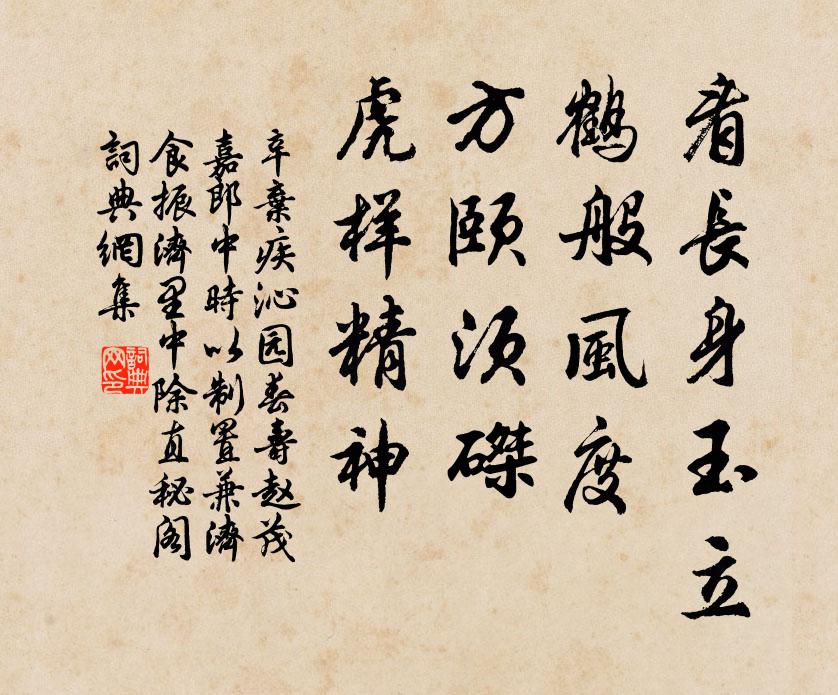 看長身玉立
鶴般風度
方頤須磔
虎样精神
辛棄疾沁园春壽赵茂
嘉郎中時以制置兼濟
倉振濟里中除直秘阁
詞典網集
詞典网印